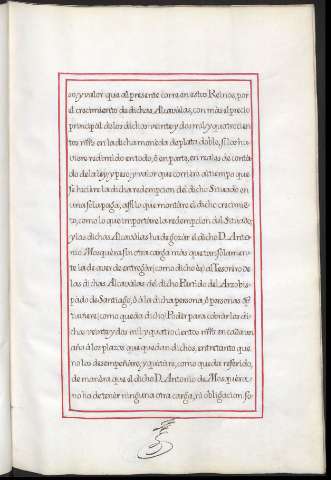 en, y valor que al presente corra en estos Reinos, por
el crecimiento de dichas Alcavalas, con mas el precio
principal de los dichos veinte y dos mil y quatrocien
tos mrs. en la dicha moneda de plata doble, si los hu
viere redimido en todo, ô en parte, en reales de conta
do de la ley, y peso, y valor que corriere al tiempo que
se hiciere la dicha redempcion del dicho Situado en
una sola paga; assi lo que montare el dicho crecimien
to, como lo que importare la redempcion del Situado,
y las dichas Alcavalas ha de gozar el dicho D. Anto
nio Mosquera sin otra carga mas que tan solamen
te la de aver de entregar (como dicho es) al Tesorero de
las dichas Alcavalas del dicho Partido del Arzobis
pado de Santiago, ô â la dicha persona, ô personas que
tuviere (como queda dicho) Poder para cobrar los di
chos veinte y dos mil y quatrocientos mrs. en cada un
año â los plazos que quedan dichos, entretanto que
no los desempeñare, y quitare, como queda referido,
de manera que el dicho D. Antonio de Mosquera
no ha de tener ninguna otra carga, ni obligacion so